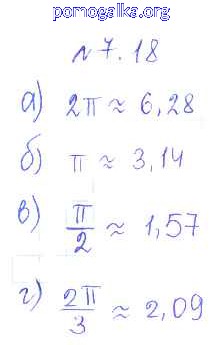 pomogalka.org
№ 7.18
а) 2π ≈ 6,28
б) π ≈ 3,14
в) π/2 ≈ 1,57
г) 2π/3 ≈ 2,09